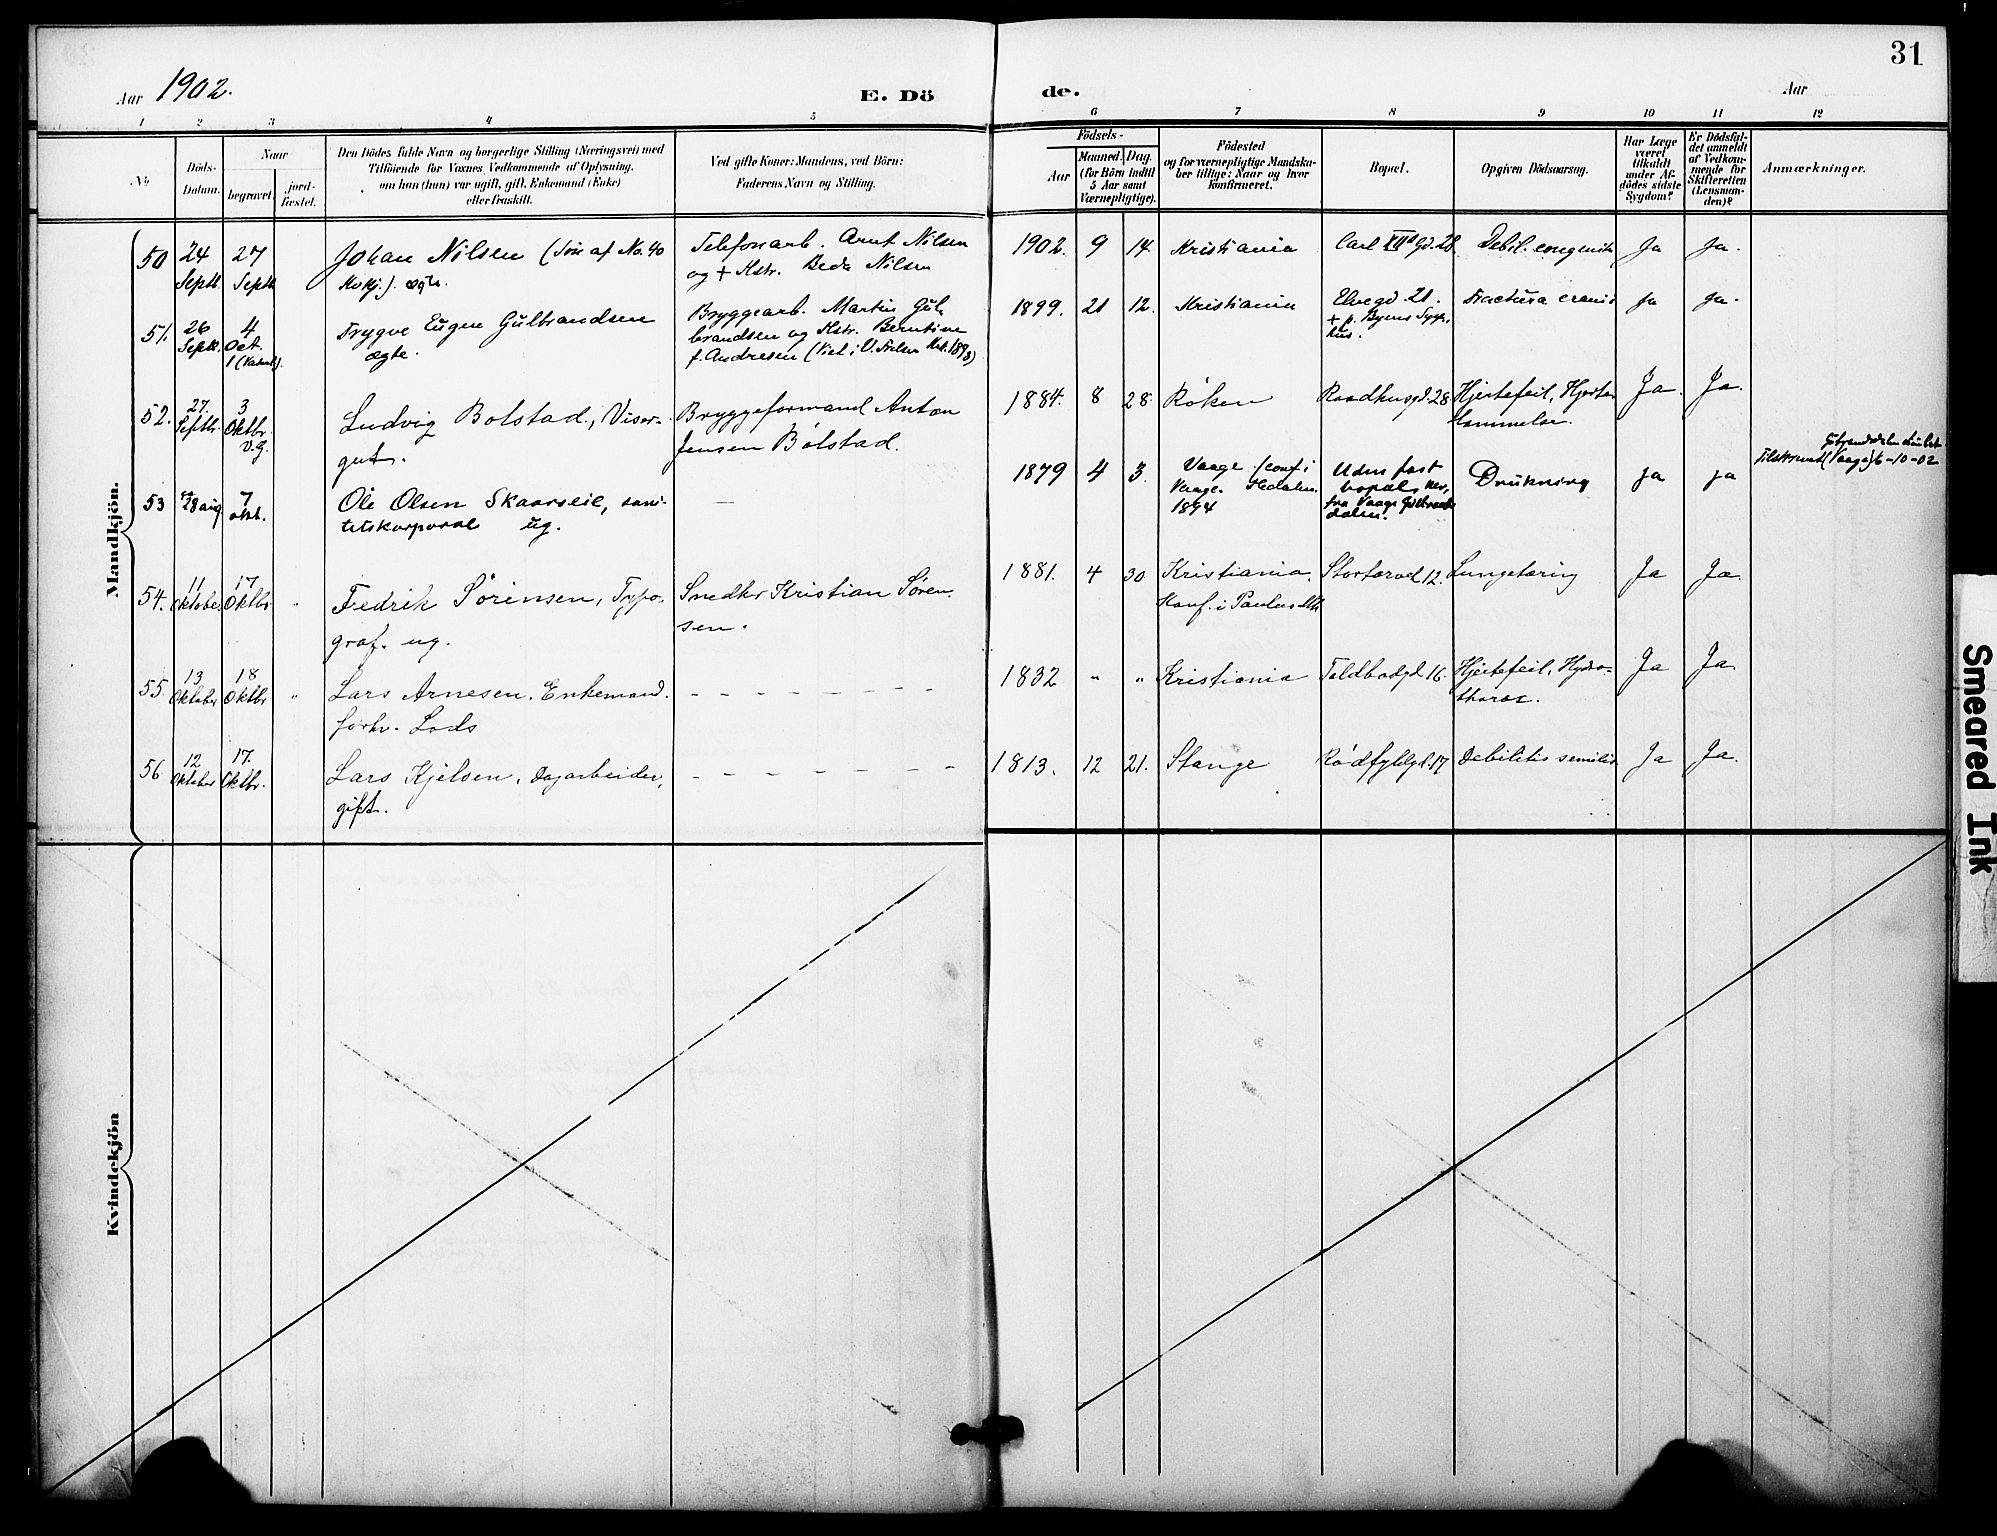 31
Aar 1902.
E. Dö de.
Aar
1 2 3 4 5 6 7 8 9 10 11 12
No.
Döds-
Datum.
Naar
begravet.
jord-
fæstet.
Den Dödes fulde Navn og borgerlige Stilling (Næringsvei) med
Tilföiende for Voxnes Vedkommende af Oplysning,
om han (hun) var ugift, gift, Enkemand (Enke)
eller fraskilt.
Ved gifte Koner: Mandens, ved Börn:
Faderens Navn og Stilling.
Födsels-
Aar
Maaned. Dag.
(for Börn indtil
5 Aar samt
Værnepligtige).
Födested
og for værnepligtige Mandska-
ber tillige: Naar og hvor
konfirmeret.
Bopæl.
Opgiven Dödsaarsag.
Har Læge
været
tilkaldt
under Af-
dödes sidste
Sygdom?
Er Dödsfal-
det anmeldt
af Vedkom-
mende for
Skifteretten
(Lensman-
den)?
Anmærkninger.
Mandkjön.
50 24 Septb. 27 Septb. Johan Nilsen (Søn af No. 40
Kvkj.) ægte.
Telefonarb. Arnt Nilsen
og + Hstr. Beda Nilsen
1902. 9 14. Kristiania Carl XII's Gd. 28 Debil. congenita Ja Ja.
51. 26 Septb. 4 Oct.
Trygve Eugen Gulbrandsen
ægte.
Bryggearb. Martin Gul-
brandsen og Hstr. Berntine
f. Andresen
1899. 21 12. Kristiania Elvegd. 21.
+ p. Byens Syge-
hus.
Fractura cranii Ja Ja.
52. 27. Septbr. 3 Oktbr. V.G.
Ludvig Bolstad, Viser-
gut.
Bryggeformand Anton
Jensen Bolstad.
1884. 8 28. Røken Raadhusgd. 28 Hjertefeil, Hjerte
Lammelse. Ja. Ja.
53 28 aug 7 oktb.
Ole Olsen Skaarseie, sani-
tetskorporal ug.
—
1879 4 3. Vaage (conf i
Vaage. Hedalen.
1894
Uden fast
bopæl her,
fra Vaage Gudbrands
dalen.
Drukning ja ja
(Vaage) 6-10-02
54. 11 Oktober 17 Oktbr. "
Fredrik Sörensen, Typo-
graf. ug.
Snedker Kristian Søren-
sen.
1881. 4 30 Kristiania.
Konf. i Paulus
Stortorvet 12. Lungetæring Ja Ja.
55. 13 Oktober 18 Oktbr "
Lars Arnesen. Enkemand.
forhv. Lods
- - - - - - - -
1832 " " Kristiania Toldbodgd 16. Hjertefeil, Hydro-
thorax. Ja Ja.
56 12 Oktober 17. Oktbr.
Lars Kjelsen, Dagarbeider,
gift.
- - - - - - - -
1813. 12 21. Stange Rødfyldgd. 17 Debilitis senilis. Ja Ja.
Kvindekjön
Smeared Ink